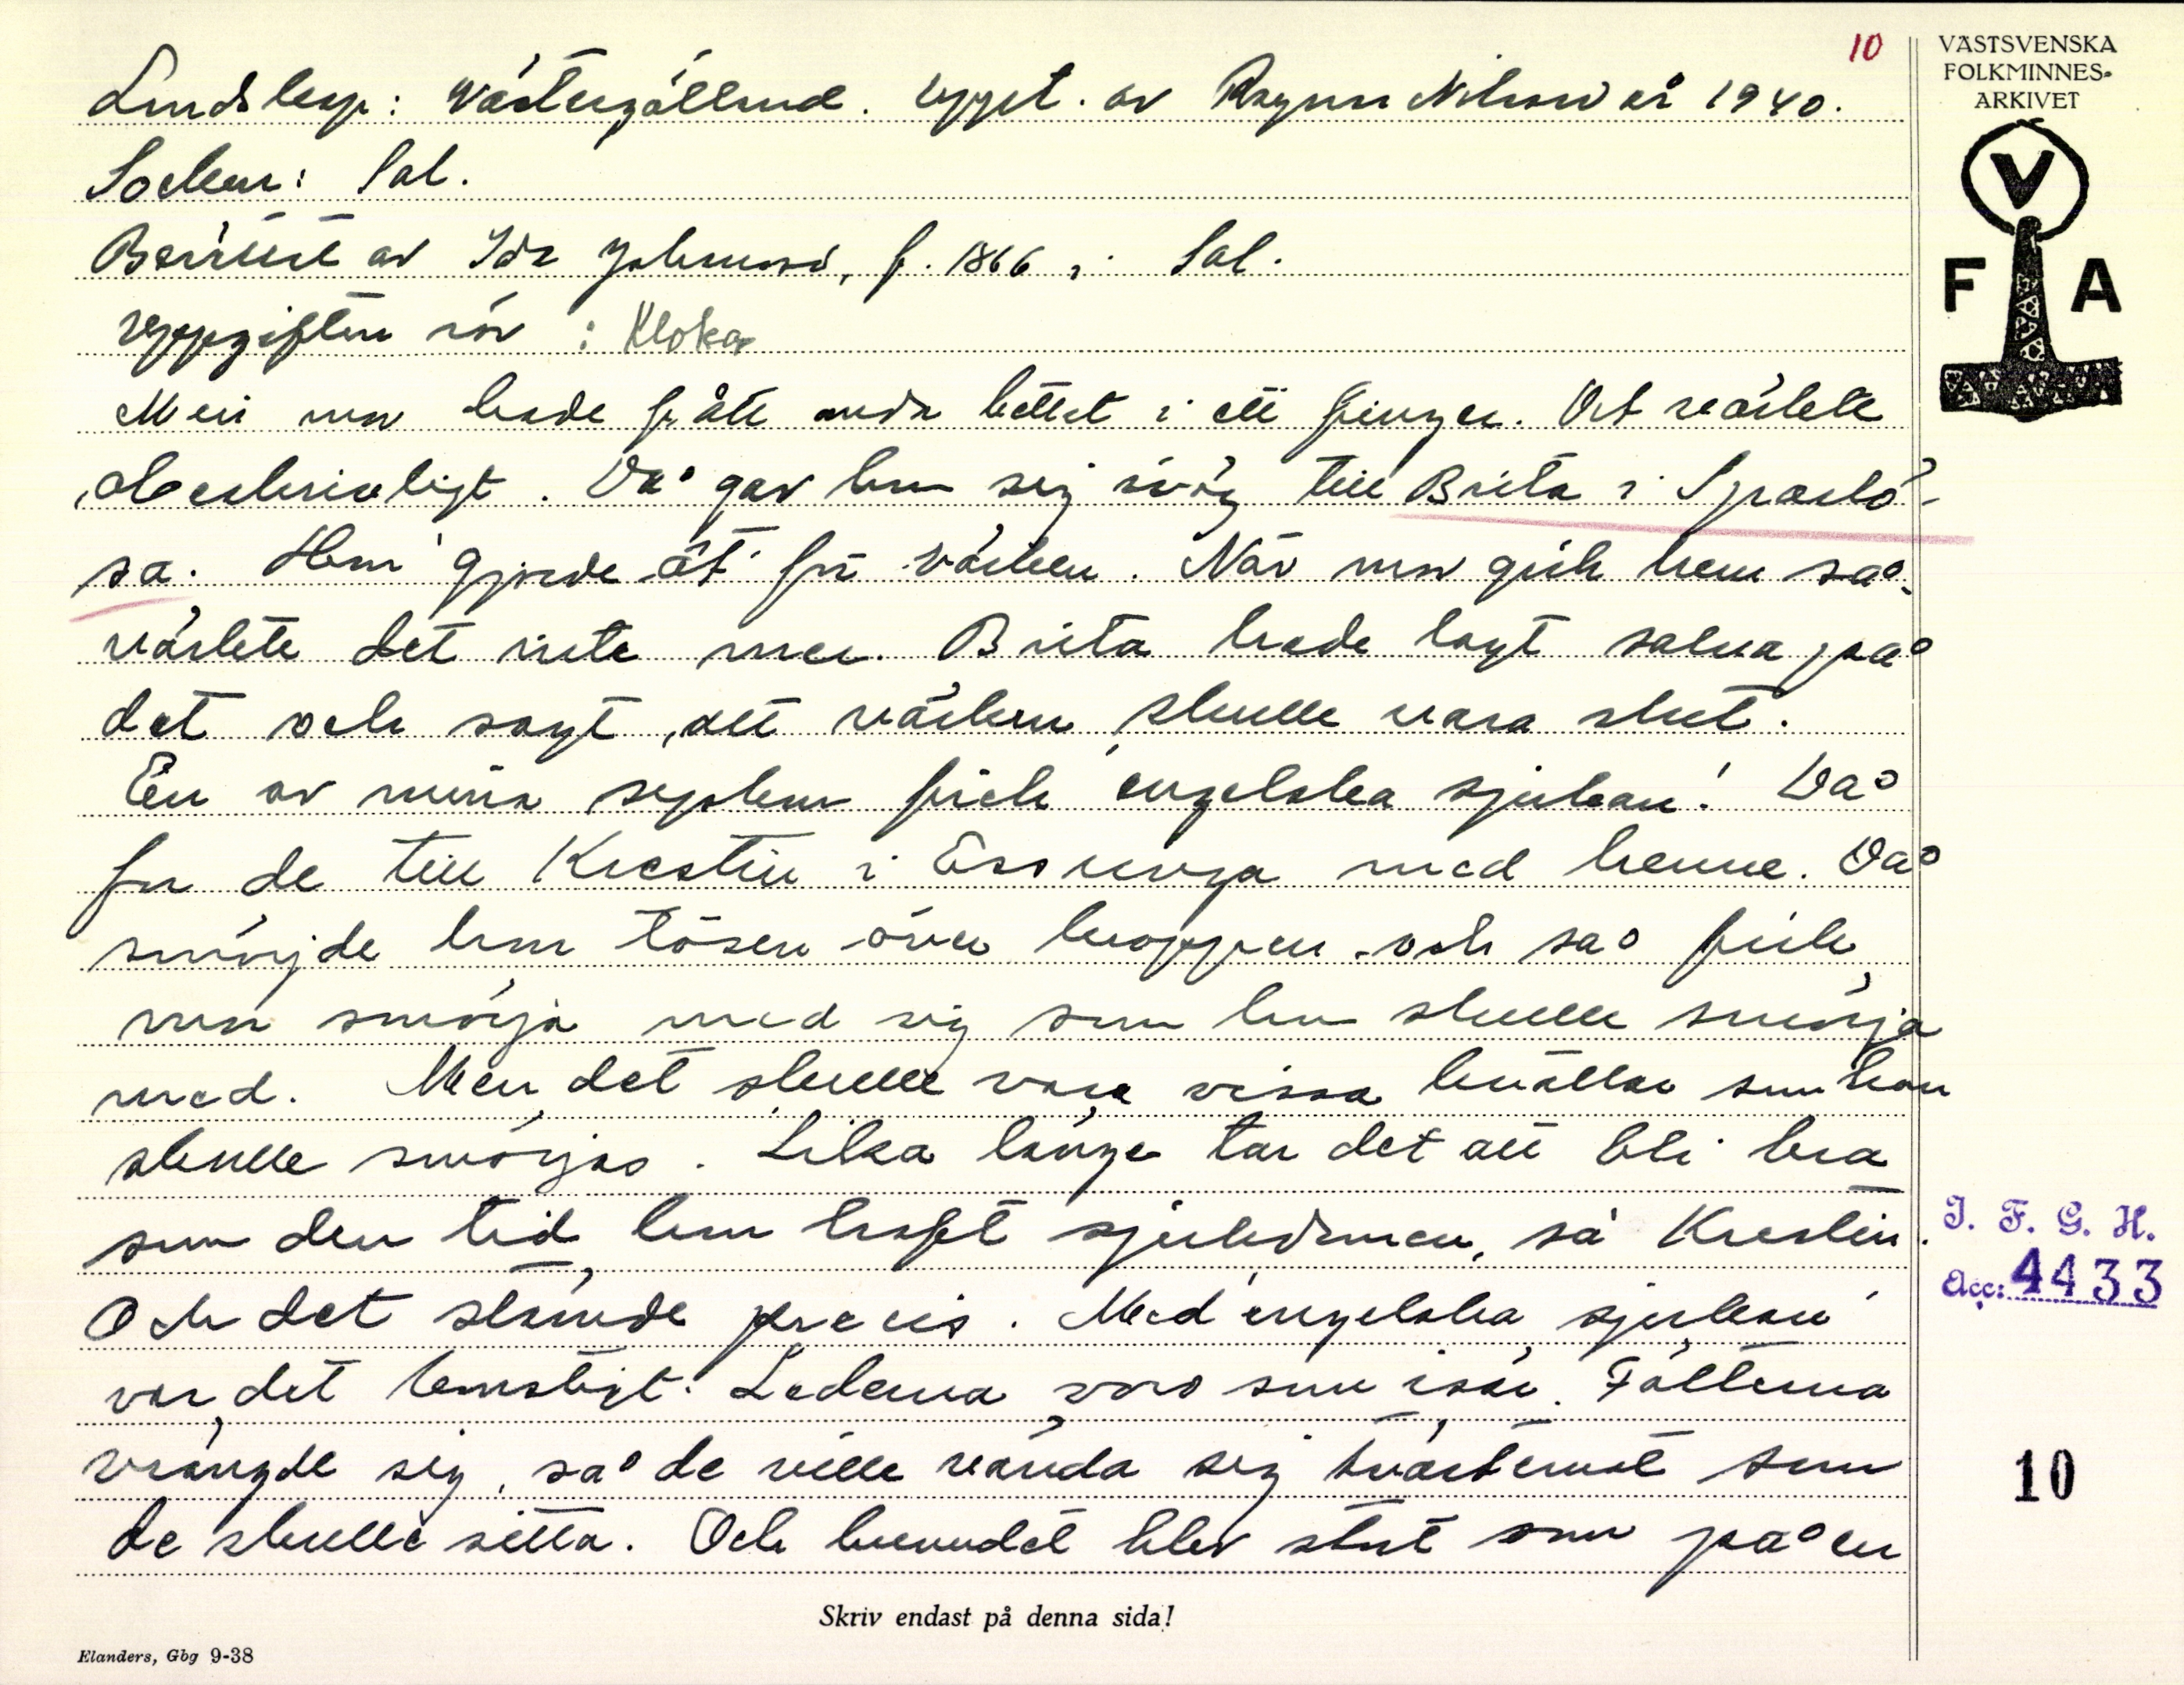 10
VÄSTSVENSKA
FOLKMINNES-
ARKIVET
V
F A
Landskap: Västergötland. Uppt. av Ragnar Nilsson år 1940.
Socken: Sal.
Berättat av Ida Johansson, f. 1866 i Sal.
Uppgiften rör: Kloka
Men mor hade fått onda bettet i ett finger. Det värkte
obeskrivligt. Då gav hon sig iväg till Brita i Sparlö-
sa. Hon gjorde åt för värken. När mor gick hem så
värkte det inte mer. Brita hade lagt salva på
det och sagt, att värken skulle vara slut.
En av mina syskon fick 'engelska sjukan'. Då
for de till Krestin i Essunga med henne. Då
smörjde hon tösen över kroppen och så fick
mor smörja med sig som hon skulle smörja
med. Men det skulle vara vissa kvällar som hon
skulle smörjas. Lika länge tar det att bli bra
som den tid hon haft sjukdomen, sa Krestin.
Och det stämde precis. Med 'engelska sjukan'
var det konstigt. Lederna voro som isär. Fötterna
vrängde sig, så de ville vända sig tvärtemot som
de skulle sitta. Och huvudet blev stort som på en
I. F. G. H.
Acc: 4433
10
Skriv endast på denna sida!
Elanders, Gbg 9-38